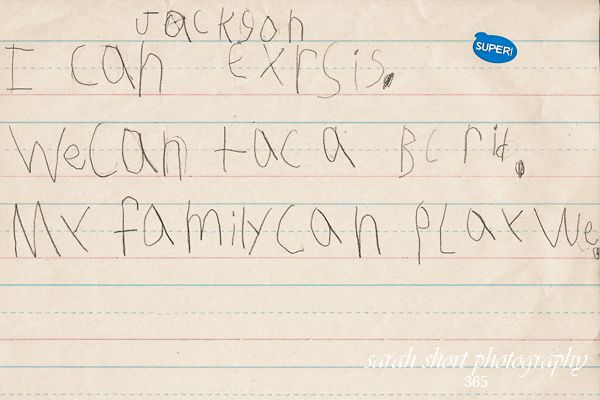 Jackson
I can exrsis.
SUPER!
We can tac a Bcrid.
My family can play We.
sarah short photography
365